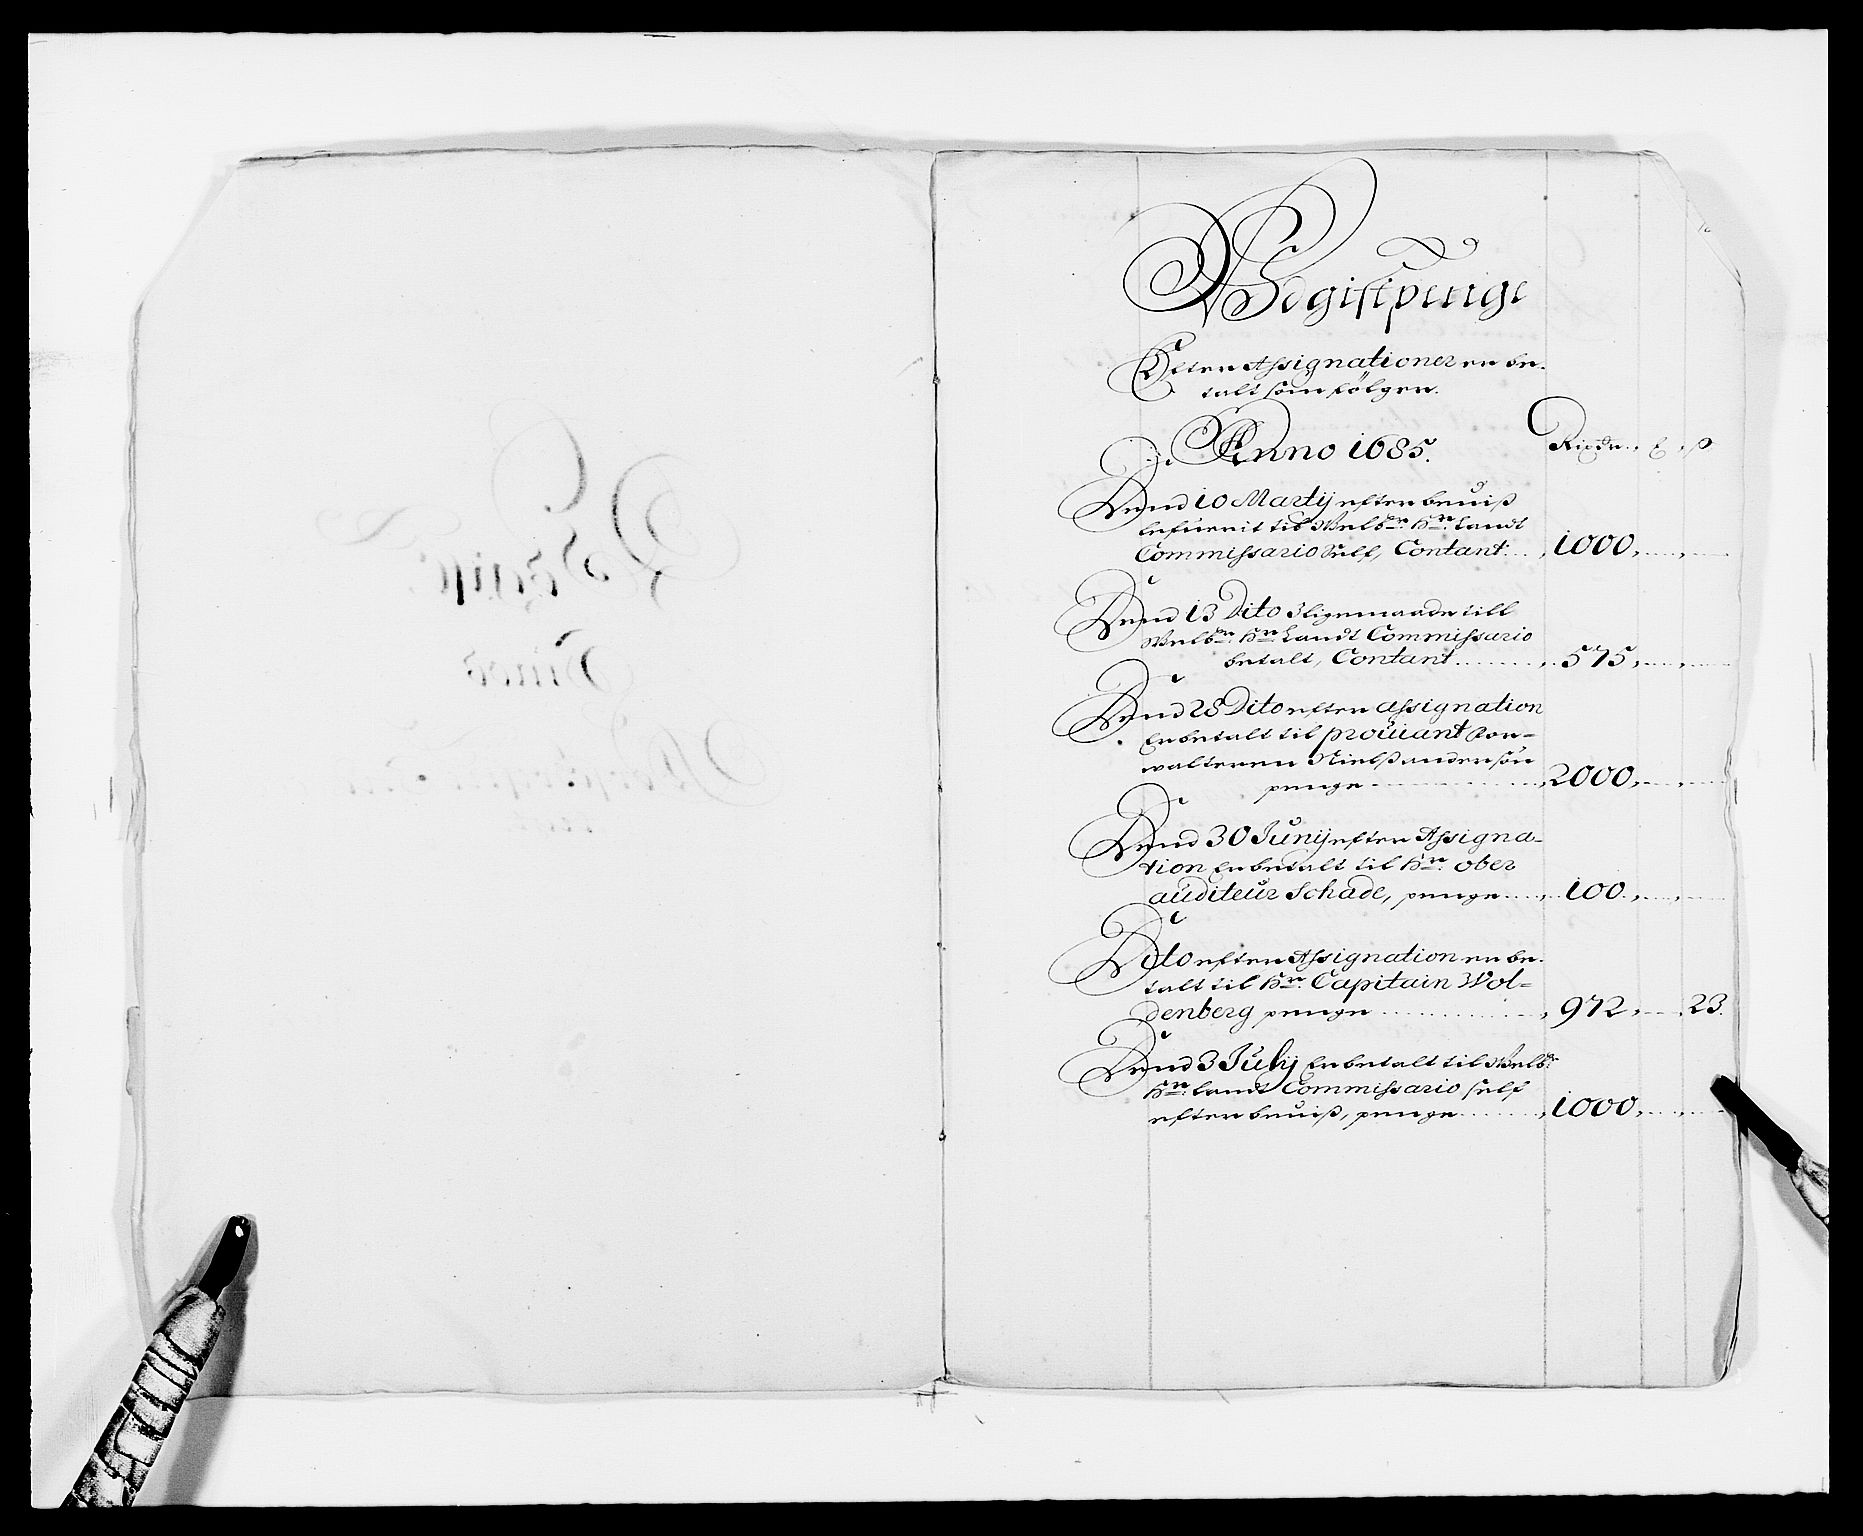 Udgifftpenge
Efter Assignationer er be-
talt som følger.
Anno 1685. Rixdr. ß
Dend 10 Martij efter beviiß
lefuerit til Welb: Hr: Landt
Commissario Self, Contant 1000
Dend 13 Dito Ligemaade till
Welb: Hr: Landt Commissario
betalt, Contant 575
Dend 28 Dito efter assignation
Er betalt til proviant for-
walteren Nielß andersøn
penge 2000
Dend 30 Junij efter Assigna-
tion Er betalt til Hr: ober
auditeur Schade, penge 100
Dito efter Assignation er be-
talt til Hr: Capitain Wol-
denberg penge 972 23
Dend 3 Julij Er betalt til Welb:
Hr: Landt Commissario self
efter beviiß, penge 1000